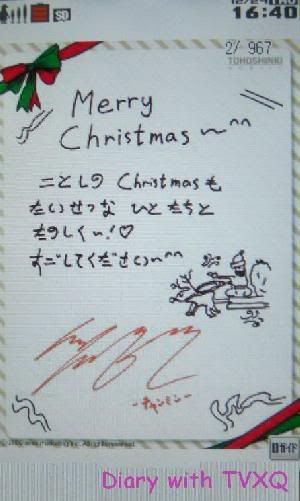 16:40
2/ 967
TOHOSHINKI
Merry
Christmas 〜^^
ことしの Christmasも
たいせつな ひとたちと
たのしく〜!♡
すごしてください〜^^
-チャンミン-
Diary with TVXQ